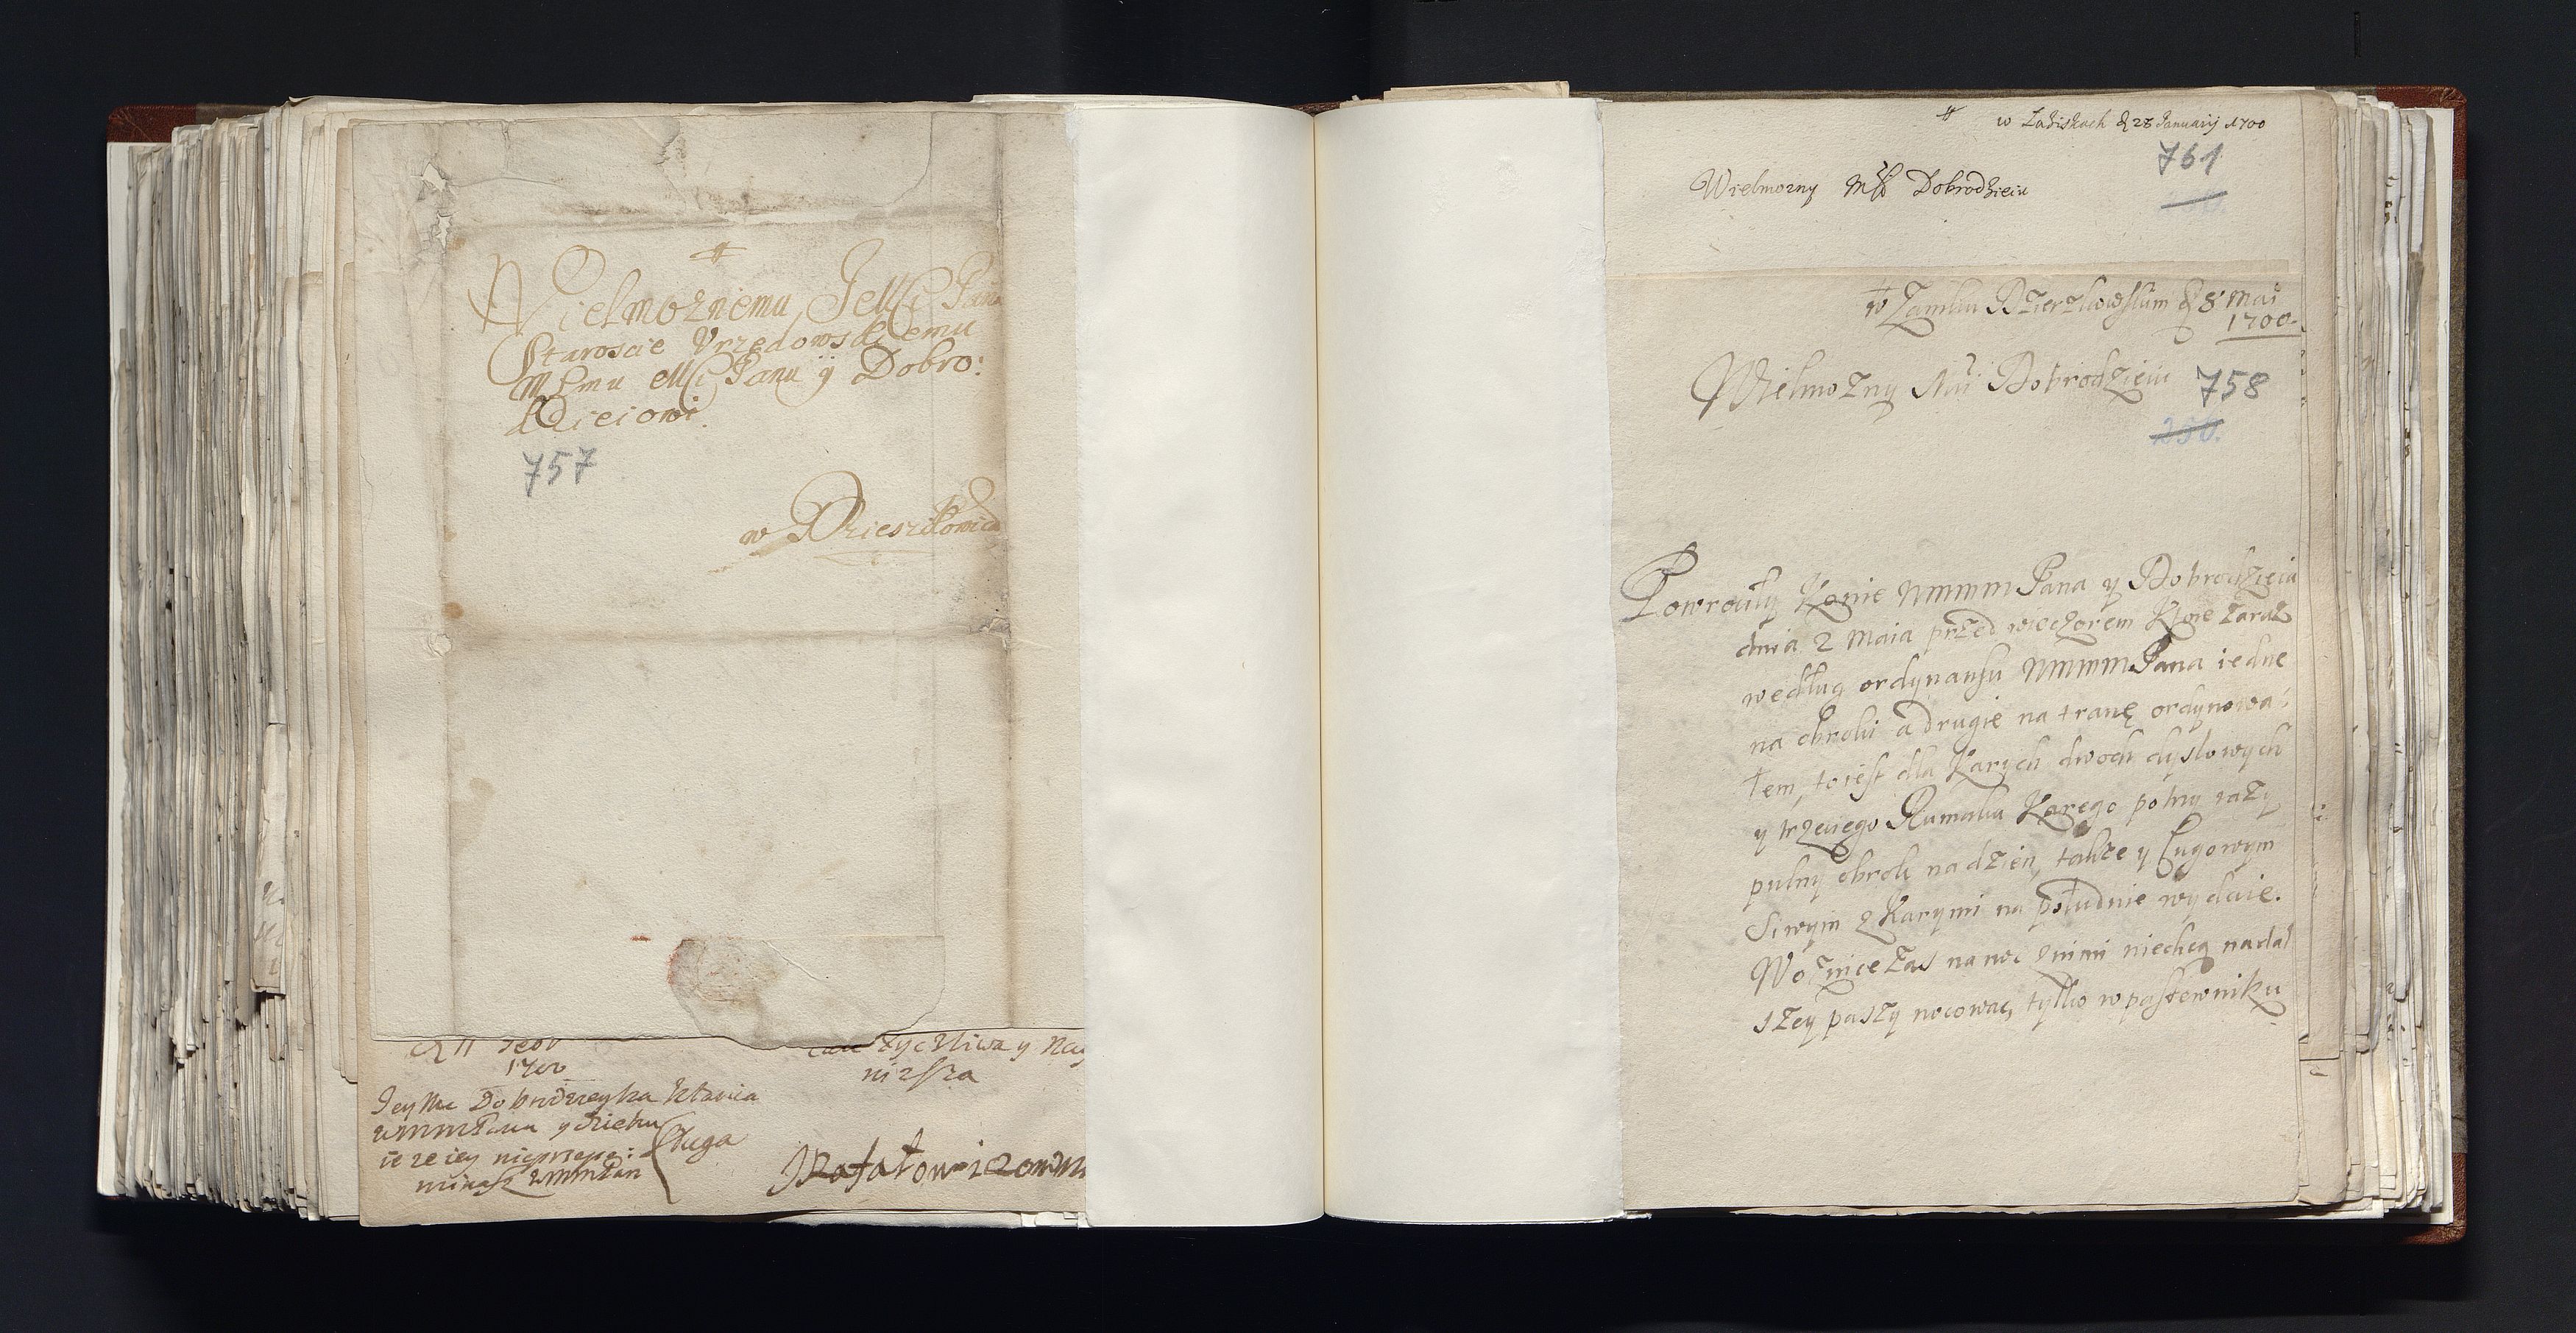 Wielmożnemu Jemści Panu
Staroscie Vrzędowskiemu
MSmu Mści Panu y Dobro:
dzieiowi
757
w Dzieszkowica
d 11 Febr
1700
Jey Mc Dobrodzieyka
WMMPana y
Sługa
życzliwa y Nay
nizsza
w Zaliskach d 28 January 1700
761
Wielmozny Mści Dobrodzieiu
w Zamku Dzierzkowskim d 8 Mai
1700.
Wielmozny Mści Dobrodzieiu 758
Powrociły Konie WMMMPana y Dobrodzieia
dnia 2 Maia przed wieczorem Ktore zaraz
według ordynansu WMMMPana iedne
na obroki a drugie na trawę ordynowa:
łem, to iest dla Karych dwoch dyslowych
y trzeciego Rumaka Karego połny razy
pułny obrok na dzien, takze y Cugowym
Siwym z Karymi na południe wydaie.
Woznice zas na noc z nimi niechcą na dal
szey paszy nocowac, tylko w pastewniku